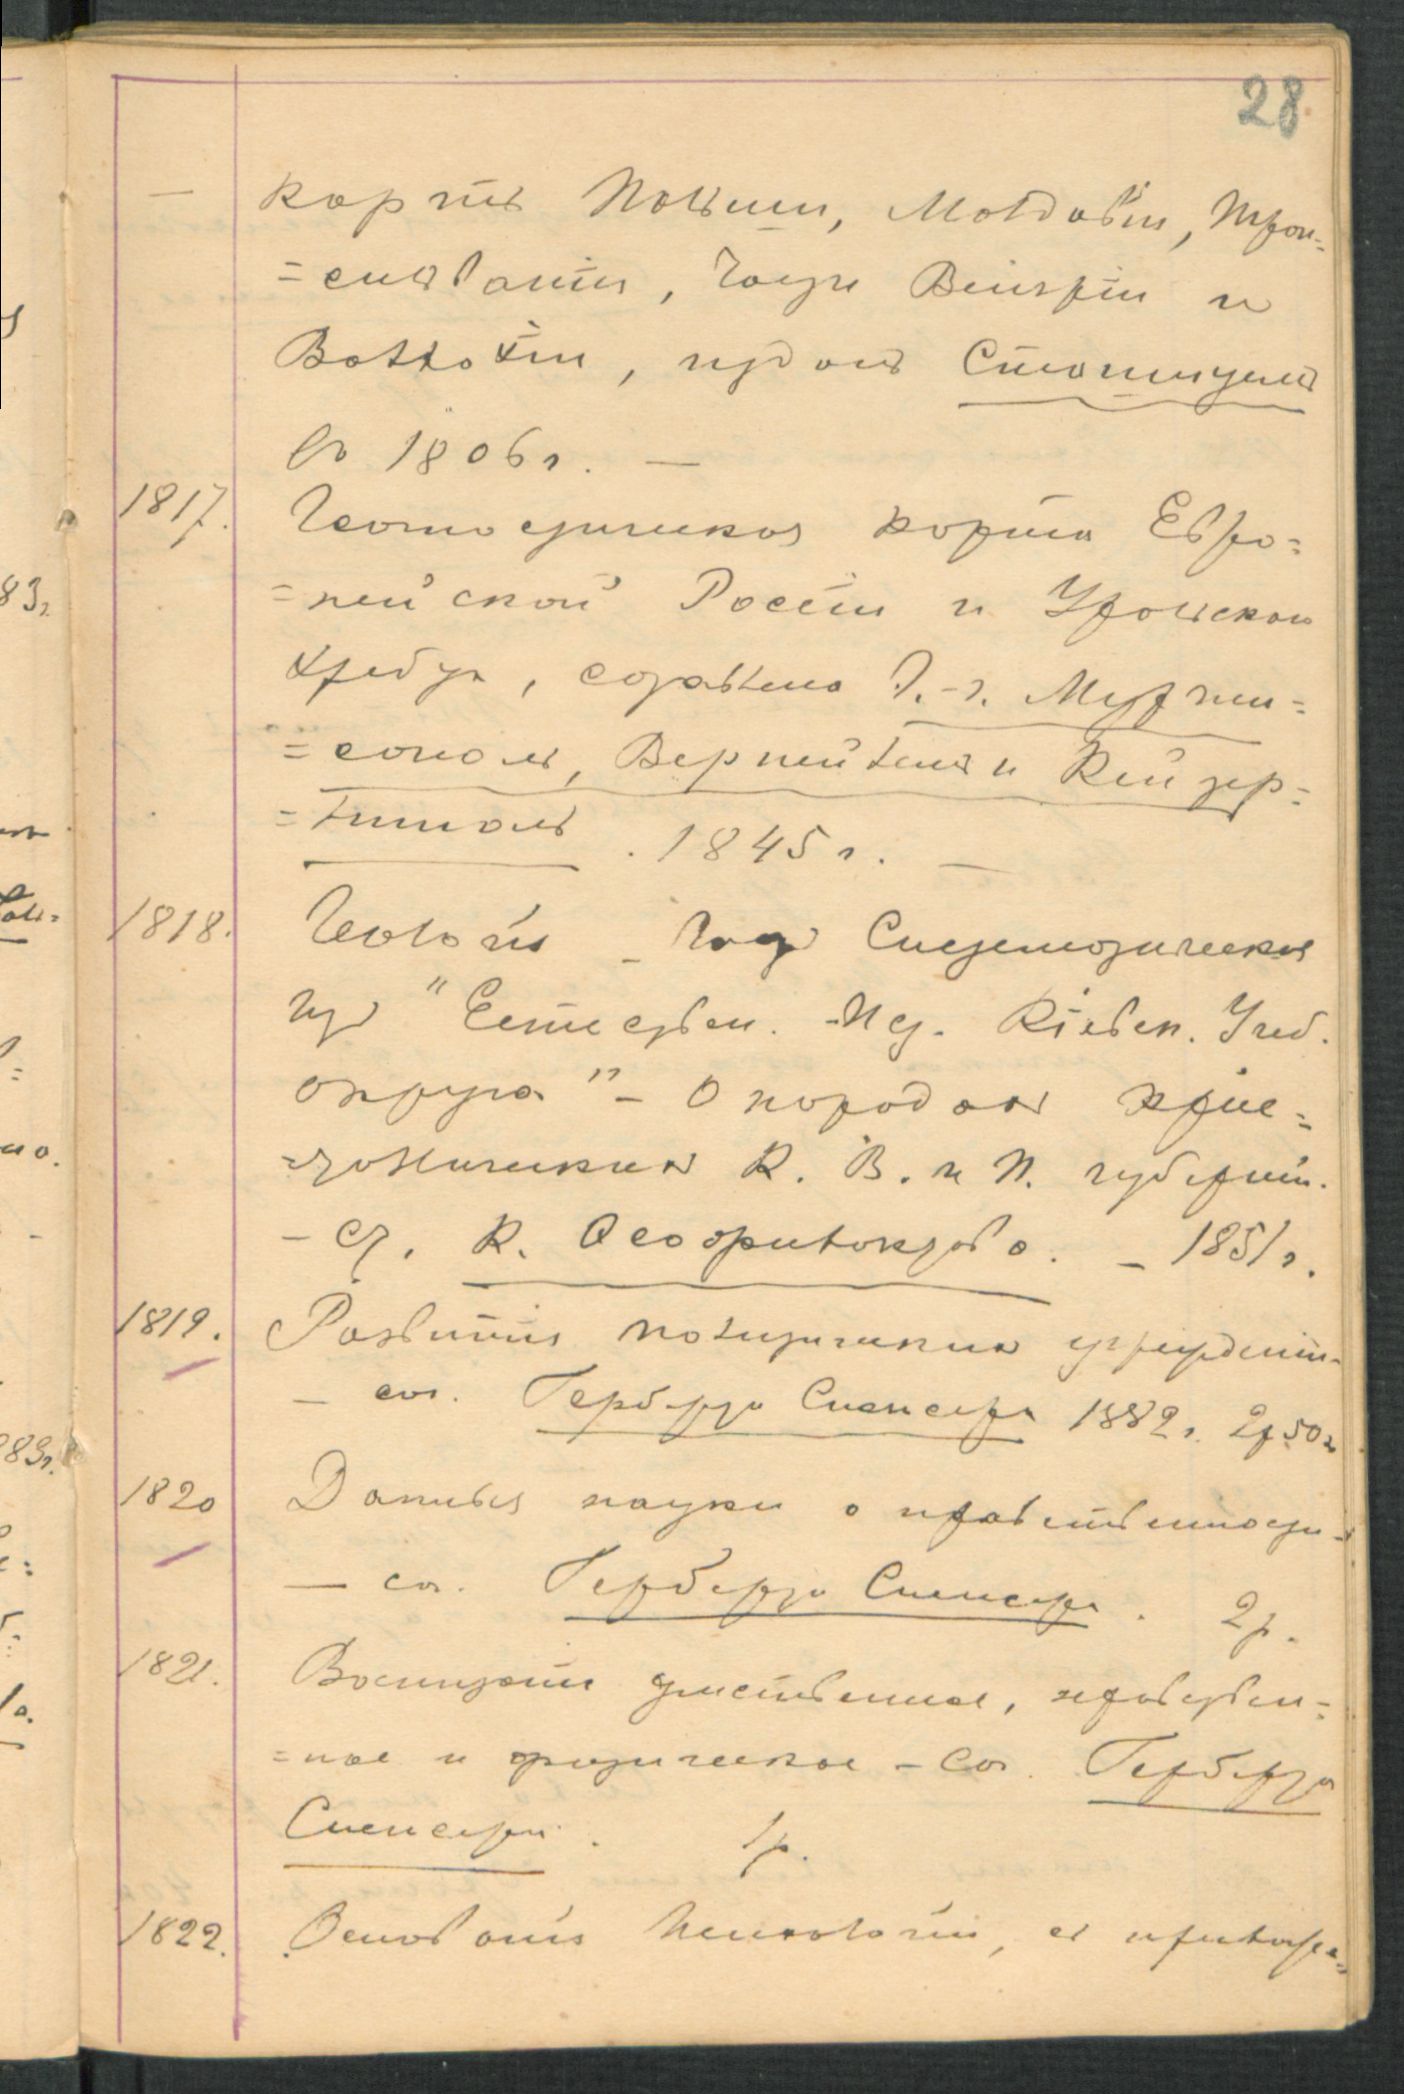 28
— картъ Польши, Молдавіи, Тран=
=сильваніи, части Венгріи и
Валлахіи, издан. Станицкимъ
въ 1806 г. —
1817. Геогностическая карта Евро=
=пейской Россіи и Уральскаго
хребта, составлена г.-г. Мурчи=
=сономъ, Вернейлемъ и Кейзер=
=лингомъ. 1845 г. —
1818. Геологія – Гео
изъ "Естествен. Ист. Кіевск. Учеб.
округа" – О породахъ крис=
=таллическихъ К. В. и П. губерній.
– ст. К. Ѳеофилактова. – 1851 г.
1819. Развитіе политическихъ учрежденій
– соч. Герберта Спенсера 1882 г. 2 р 50 к
1820 Данныя науки о нравственности
– соч. Герберта Спенсера. 2 р.
1821. Воспитаніе умственное, нравствен=
=ное и физическое – соч. Герберта
Спенсера. 1 р.
1822. Основанія Психологіи, съ приложе=
83 г.